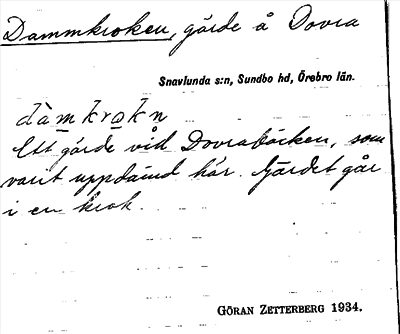 Dammkroken, gärde å Dovra
Snavlunda s:n, Sundbo hd, Örebro län.
dàmkrokn
Ett gärde vid Dovrabäcken, som
varit uppdämd här. Gärdet går
i en krok.
GÖRAN ZETTERBERG 1934.